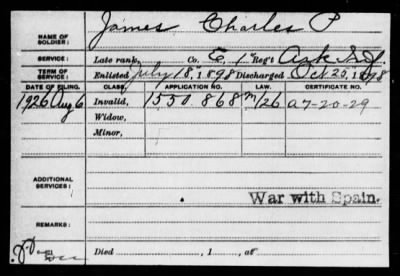 NAME OF SOLDIER: James Charles P
SERVICE: Late rank, Co. E, 1" Reg't Ark
TERM OF SERVICE: Enlisted July 18, 1898 Discharged Oct 25, 1898
DATE OF FILING. CLASS. APPLICATION NO. LAW. CERTIFICATE NO.
1926 Aug 6 Invalid, 1550 868 A7-20-29
Widow,
Minor,
ADDITIONAL SERVICES:
War with Spain.
REMARKS:
Died , 1 , at